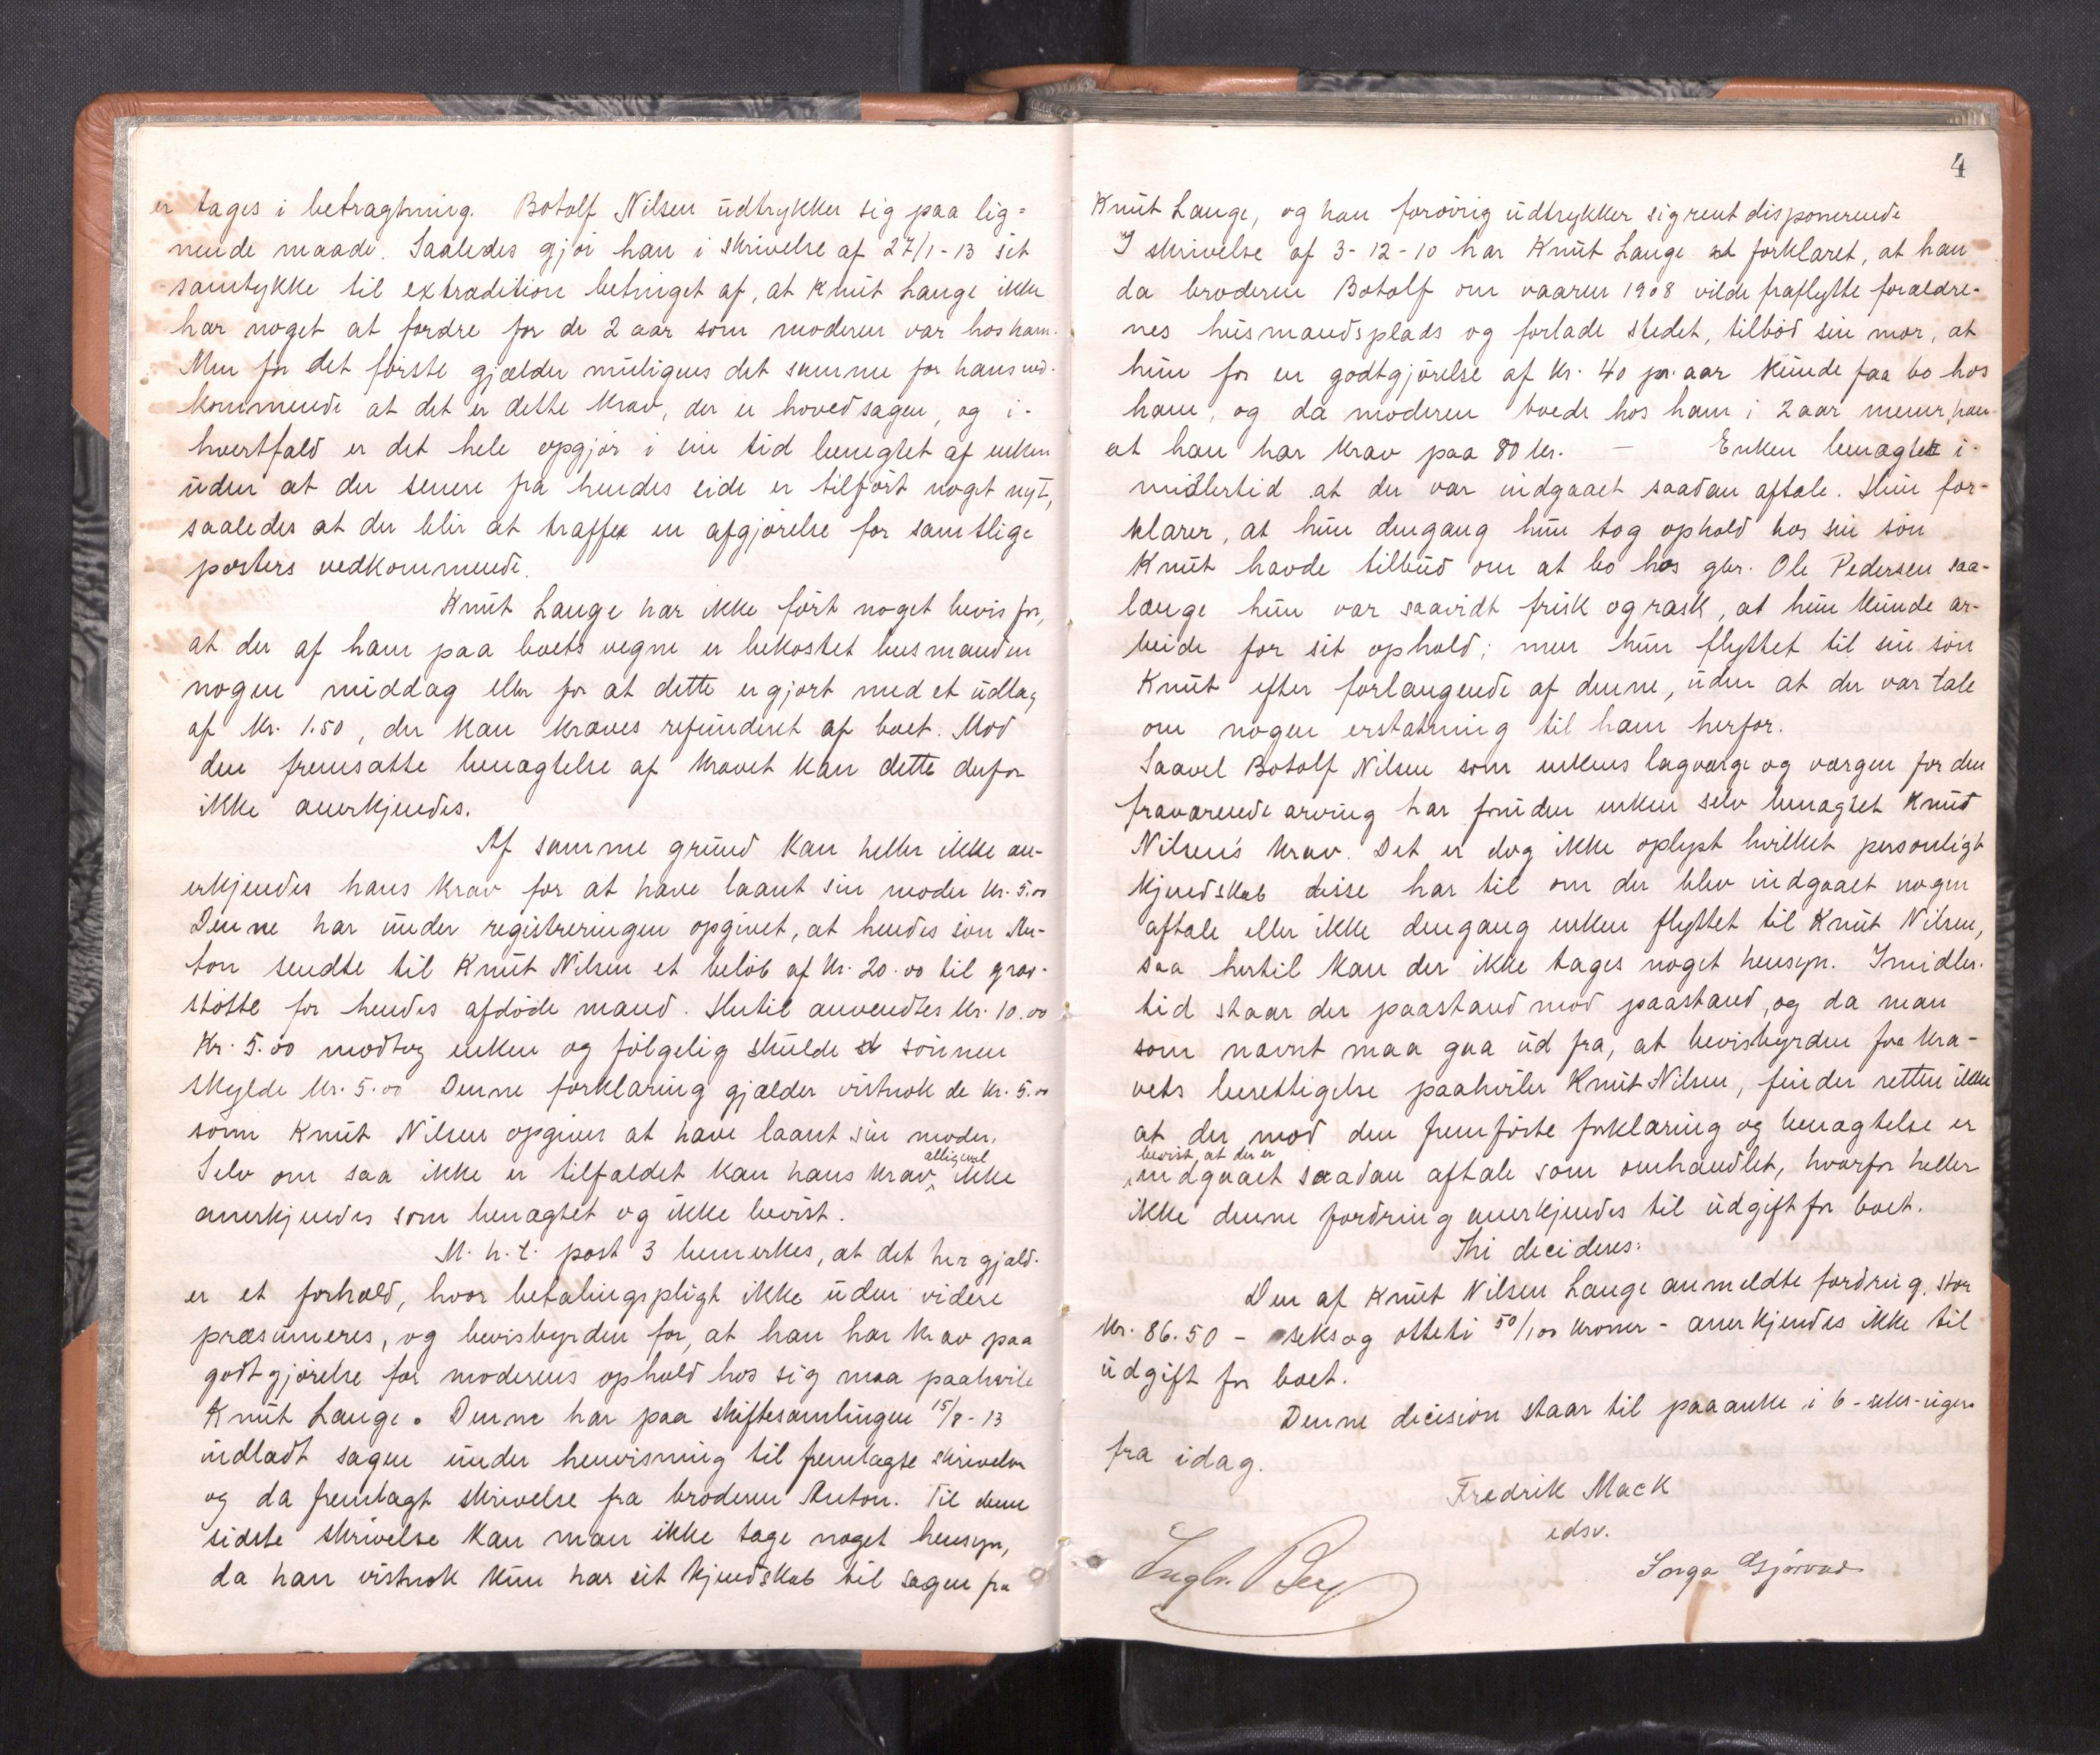 er tages i betragtning. Botolf Nilsen udtrykker sig paa lig=
nende maade. Saaledes gjör han i skrivelse af 27/1-13 sit
samtykke til extradition betinget af, at Knut Lange ikke
har noget at fordre for de 2 aar som moderen var hos ham.
Men for det förste gjælder muligens det samme for hans ved-
kommende at det er dette krav, der er hovedsagen, og i-
hvertfald er det hele opgjör i sin tid benegtet af enken
uden at der senere fra hendes side er tilfört noget nyt,
saaledes at der blir at træffe en afgjörelse for samtlige
posters vedkommende.
Knut Lange har ikke fört noget bevis for,
at der af ham paa boets vegne er bekostet husmanden
nogen middag eller for at dette er gjort med et udlæg
af kr. 1.50, der kan kræves refunderet af boet. Mod
den fremsatte benægtelse af kravet kan dette derfor
ikke anerkjendes.
Af samme grund kan heller ikke an-
erkjendes hans krav for at have laant sin moder kr. 5.00
Denne har under registreringen opgivet, at hendes sön An-
ton sendte til Knut Nilsen et belöb af kr. 20.00 til grav-
stötte for hendes afdöde mand. Hertil anvendtes kr. 10.00
Kr. 5.00 modtog enken og fölgelig skulde sönnen
skylde kr. 5.00 Denne forklaring gjælder vistnok de kr. 5.00
som Knut Nilsen opgiver at have laant sin moder.
Selv om saa ikke er tilfældet kan hans krav alligevel ikke
anerkjendes som benægtet og ikke bevist.
M. h. t. post 3 bemerkes, at det her gjæld-
er et forhold, hvor betalingspligt ikke uden videre
præsumeres, og bevisbyrden for, at han har krav paa
godtgjörelse for moderens ophold hos sig maa paahvile
Knut Lange. Denne har paa skiftesamlingen 15/8-13
indladt sagen under henvisning til fremlagte skrivelser
og da fremlagt skrivelse fra broderen Anton. Til denne
sidste skrivelse kan man ikke tage noget hensyn,
da han vistnok kun har sit kjendskab til sagen fra
4
Knut Lange, og han forövrig udtrykker sig rent disponerende
I skrivelse af 3-12-10 har Knut Lange forklaret, at han
da broderen Botolf om vaaren 1908 vilde fraflytte forældre-
nes husmandsplads og forlade stedet, tilböd sin mor, at
hun for en godtgjörelse af kr. 40 pr. aar kunde faa bo hos
ham, og da moderen boede hos ham i 2 aar mener han
at han har krav paa 80 kr. — Enken benægtet i-
midlertid at der var indgaaet saadan aftale. Hun for-
klarer, at hun dengang hun tog ophold hos sin sön
Knut havde tilbud om at bo hos gbr. Ole Pedersen saa-
længe hun var saavidt frisk og rask, at hun kunde ar-
beide for sit ophold; men hun flyttet til sin sön
Knut efter forlangende af denne, uden at der var tale
om nogen erstatning til ham herfor.
Saavel Botolf Nilsen som enkens lagværge og værgen for den
fraværende arving har foruden enken selv benægtet Knut
Nilsen's krav. Det er dog ikke oplyst hvilket personligt
kjendskab disse har til om der blev indgaaet nogen
aftale eller ikke dengang enken flyttet til Knut Nilsen,
saa hertil kan der ikke tages noget hensyn. Imidler-
tid staar der paastand mod paastand, og da man
som nævnt maa gaa ud fra, at bevisbyrden for kra-
vets berettigelse paahviler Knut Nilsen, finder retten ikke
at der mod den fremförte forklaring og benægtelse er
bevist, at der er
indgaaet saadan aftale som omhandlet, hvorfor heller
ikke denne fordring anerkjendes til udgift for boet.
Thi decideres:
Den af Knut Nilsen Lange anmeldte fordring, stor
kr. 86.50 - seks og otteti 50/100 kroner - anerkjendes ikke til
udgift for boet.
Denne decision staar til paaanke i 6 - seks - uger
fra idag.
Fredrik Mack
edsv.
Ingbr. Berg
Inga Gjörvad